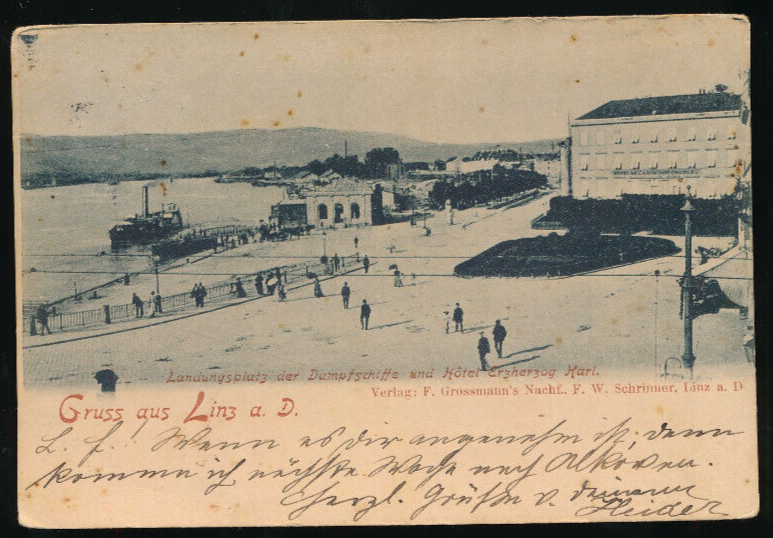 Landungsplatz der Dampfschiffe und Hôtel Erzherzog Karl.
Verlag: F. Grossmann's Nachf., F. W. Schrinner, Linz a. D
Gruss aus Linz a. D.
L. F.! Wenn es dir angenehm ist, denn
komme ich nächste Woche nach Alkoven.
Herzl. Grüße v. deinem